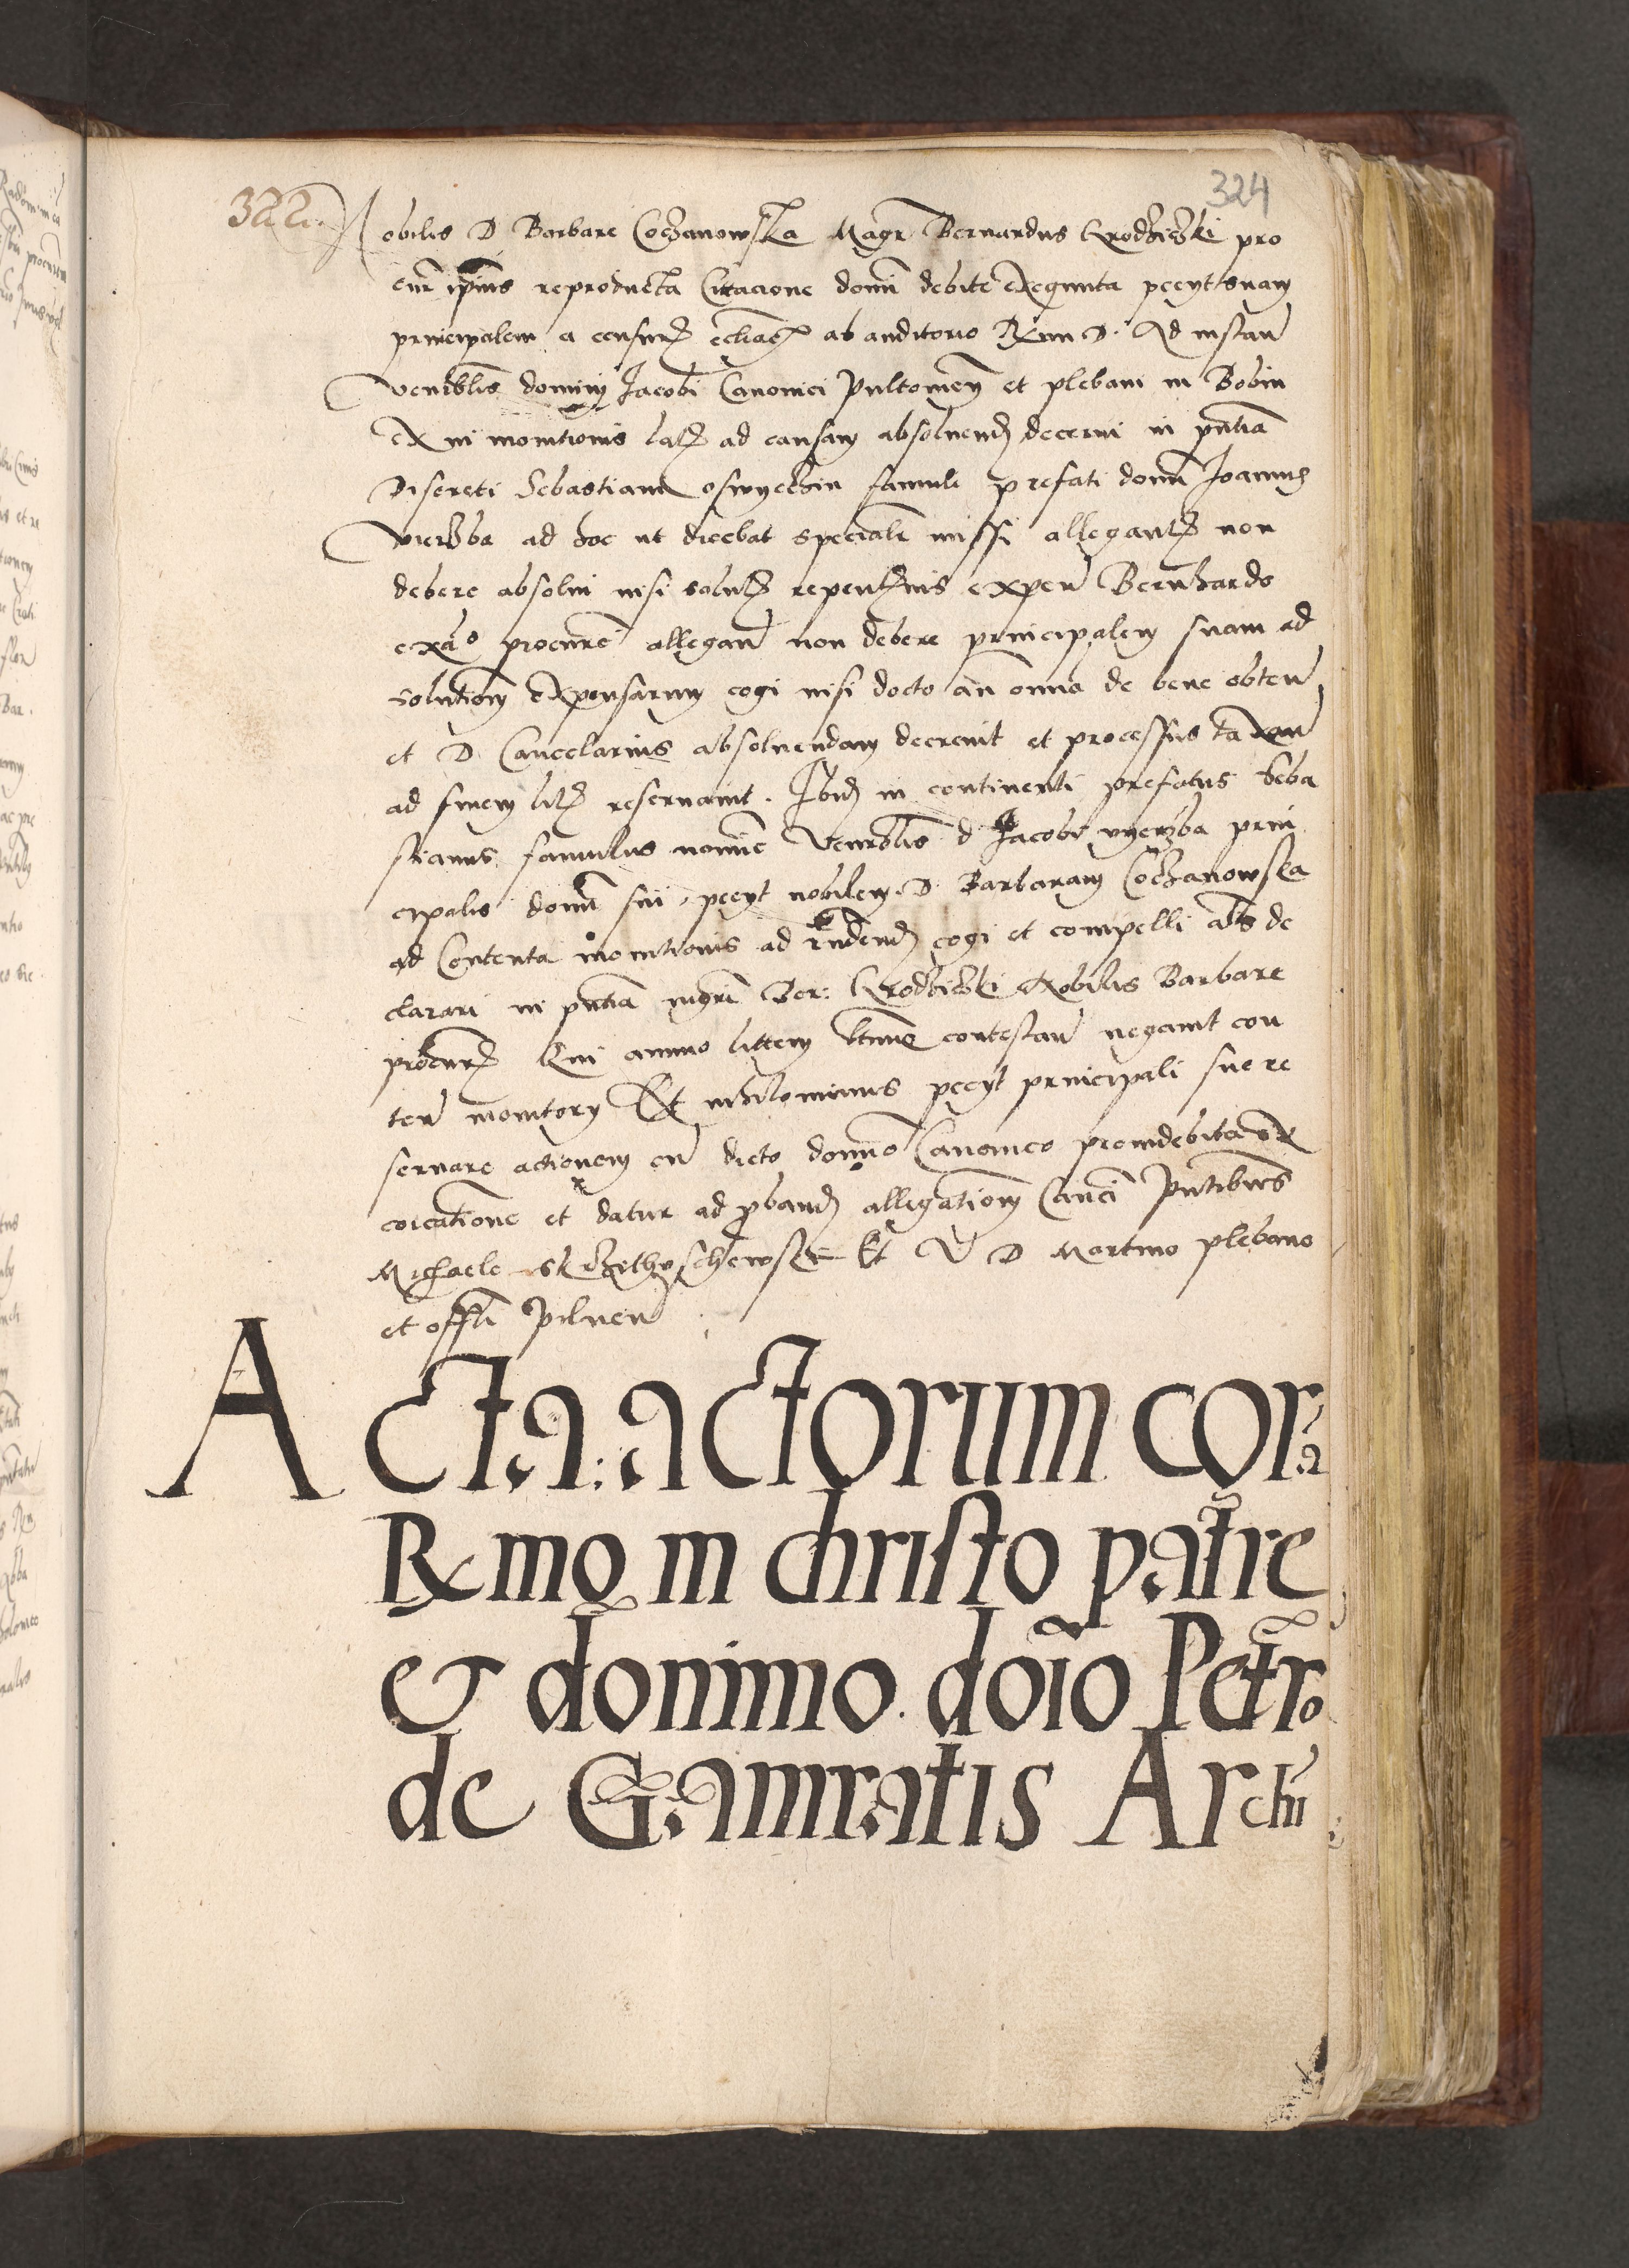 324
322.
Nobilis D Barbare Coczanowska Magr Bernardus Krodziczki pro
cur ipius reproducta Citacione domi debite exequuta peeyt suam
principalem a censur eccliae ab auditorio Rxmi D. Ad instan
Venrblis dominj Jacobi Canonici Pultomen et plebani in Bobin
ex ui monitionis lat ad causam absoluend decerni in pntia
Discreti Sebastiani oswyeczin famuli prefati domi Joannis
vierzba ad hoc ut dicebat specialr missi allegant non
debere absolui nisi solut repentinis expen Bernhardo
exao procure allegan non debere principalem suam ad
solutiom expensarum cogi nisi docto an omnia de bene obten
et D Cancelarius absoluendam decreuit et processus taxan
ad finem lit reseruauit. Ibid in continenti prefatus Seba
stianus famulus nomie Venrblis d Jacobi vyerzba prin
cipalis domi sui peeyt nobilem D Barbaram Coczanowska
ad Contenta monitionis ad rndend cogi et compelli als de
clarari in pntia mgri Ber: Krodziczki Nobilis Barbare
procur Qui animo littem contestan negauit con
ten monitory Et nihilominus peeyt principali sue re
seruare actionem cu dicto domino Canonico pro indebita ex
coicatione et datur ad pband allegatiom Canci Pntibus
Michaele Et V D Martino plebano
et offli Pilnen
Acta: actorum cora
Rxmo in christo patre
& domino. doio Petro
de Gamratis Archi